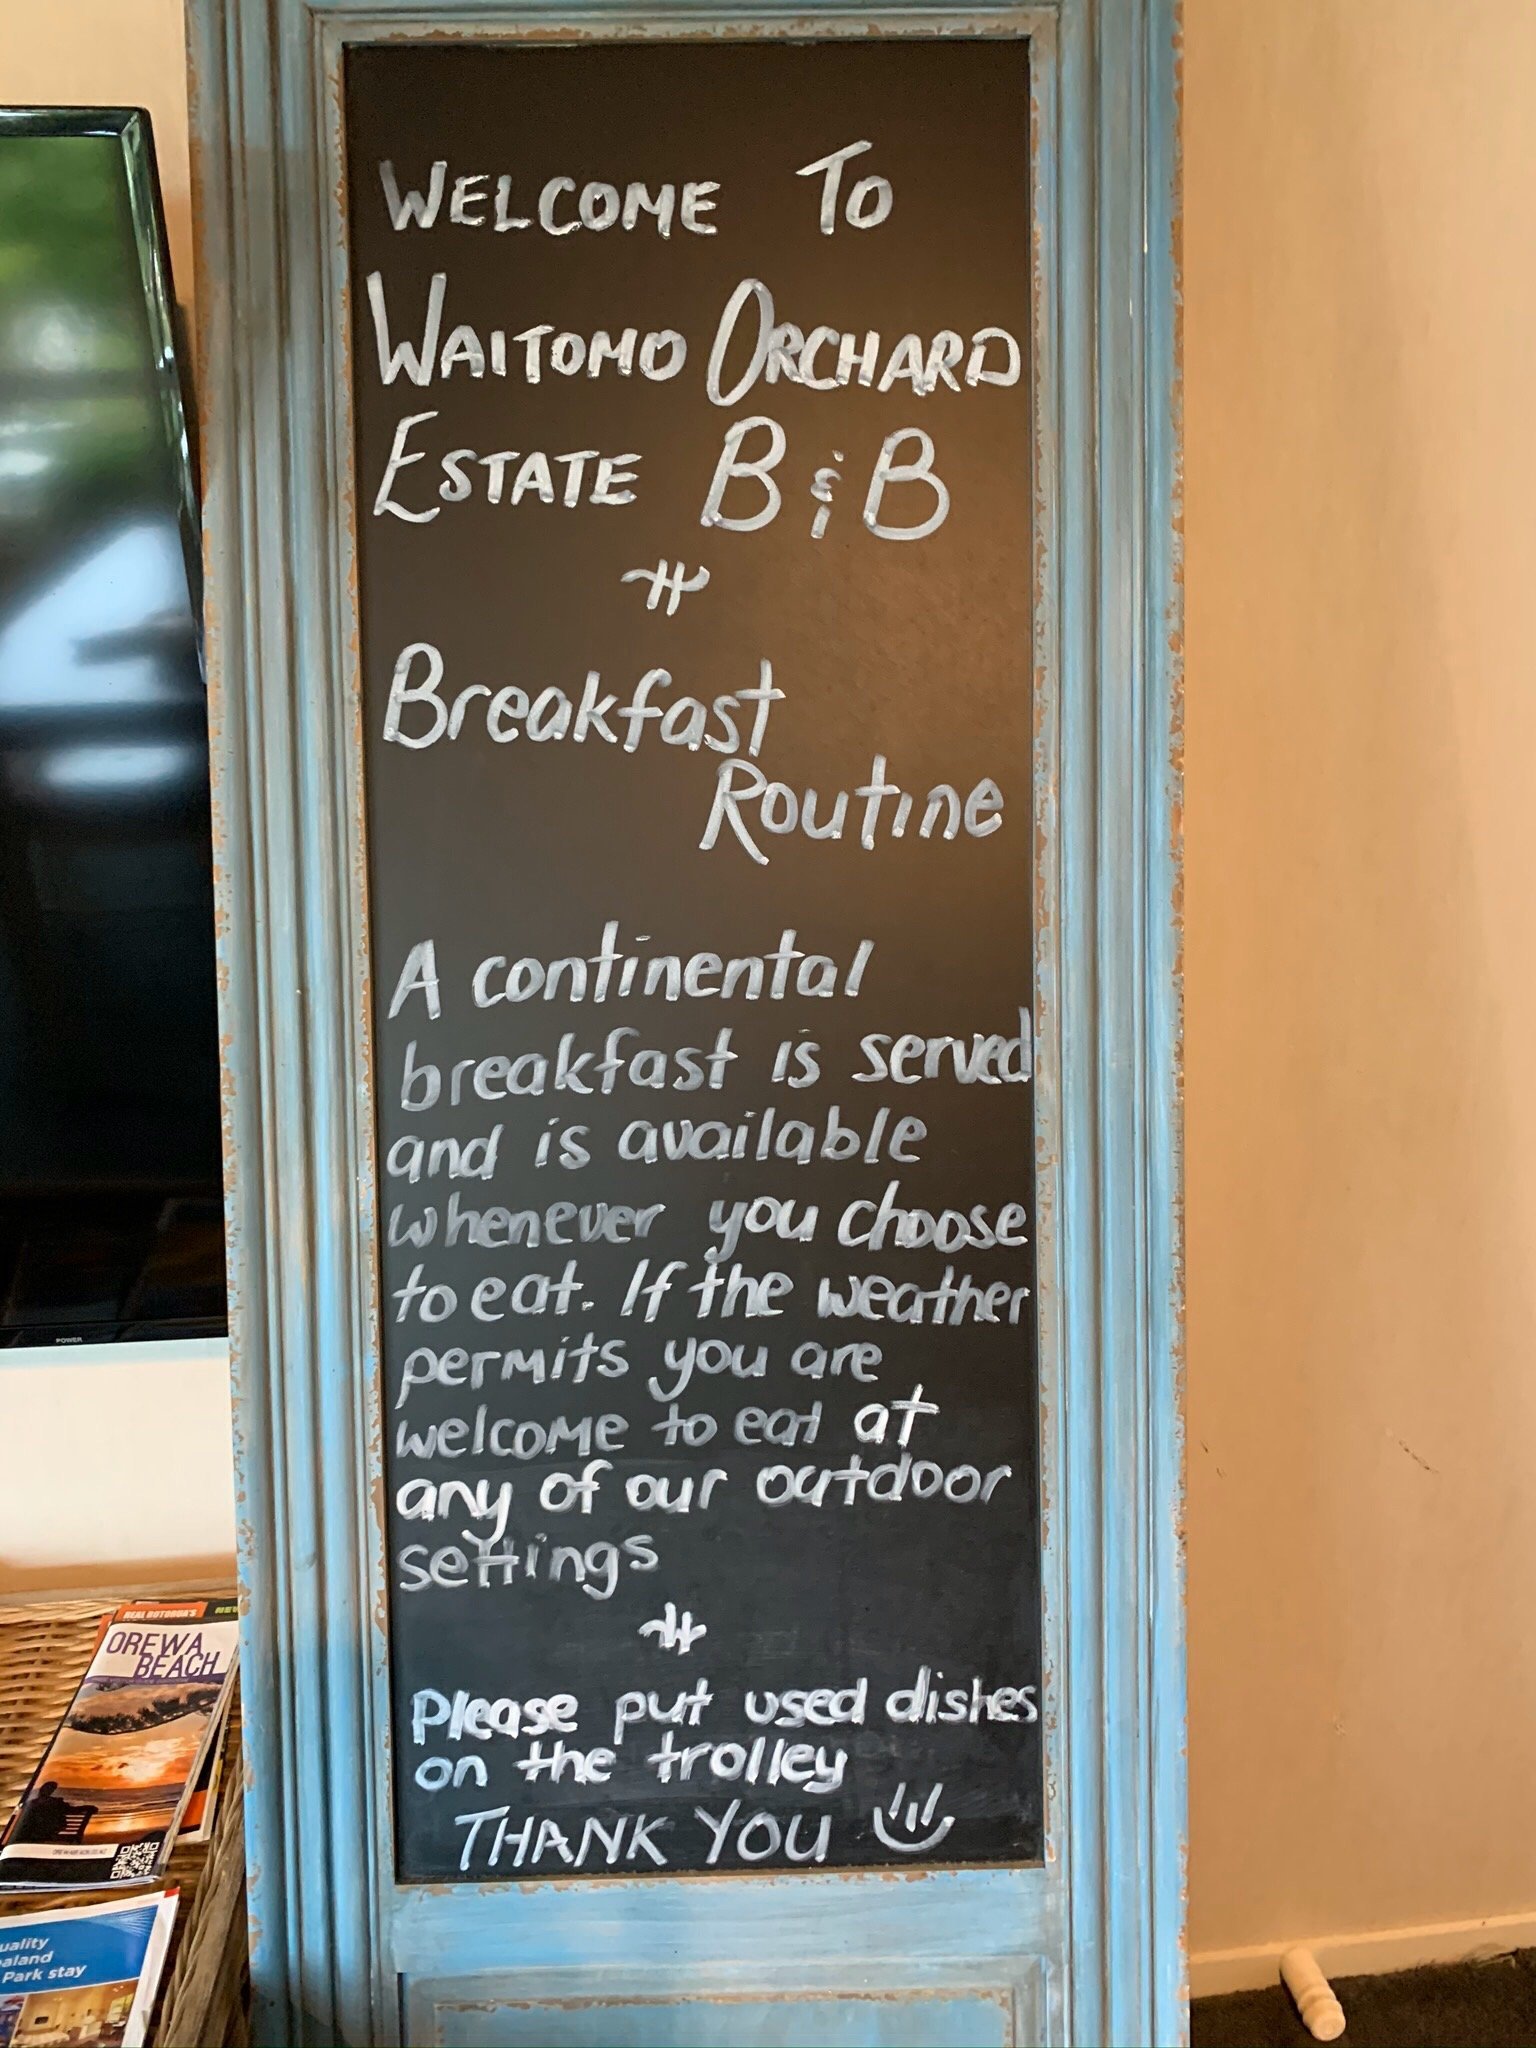 WELCOME TO
WAITOMO ORCHARD
ESTATE B & B
Breakfast
Routine
A continental
breakfast is served
and is available
whenever you choose
to eat. If the weather
permits you are
welcome to eat at
any of our outdoor
settings
Please put used dishes
on the trolley
THANK YOU
POWER
REAL ROTORUA'S
NEW
OREWA
BEACH
uality
ealand
Park stay